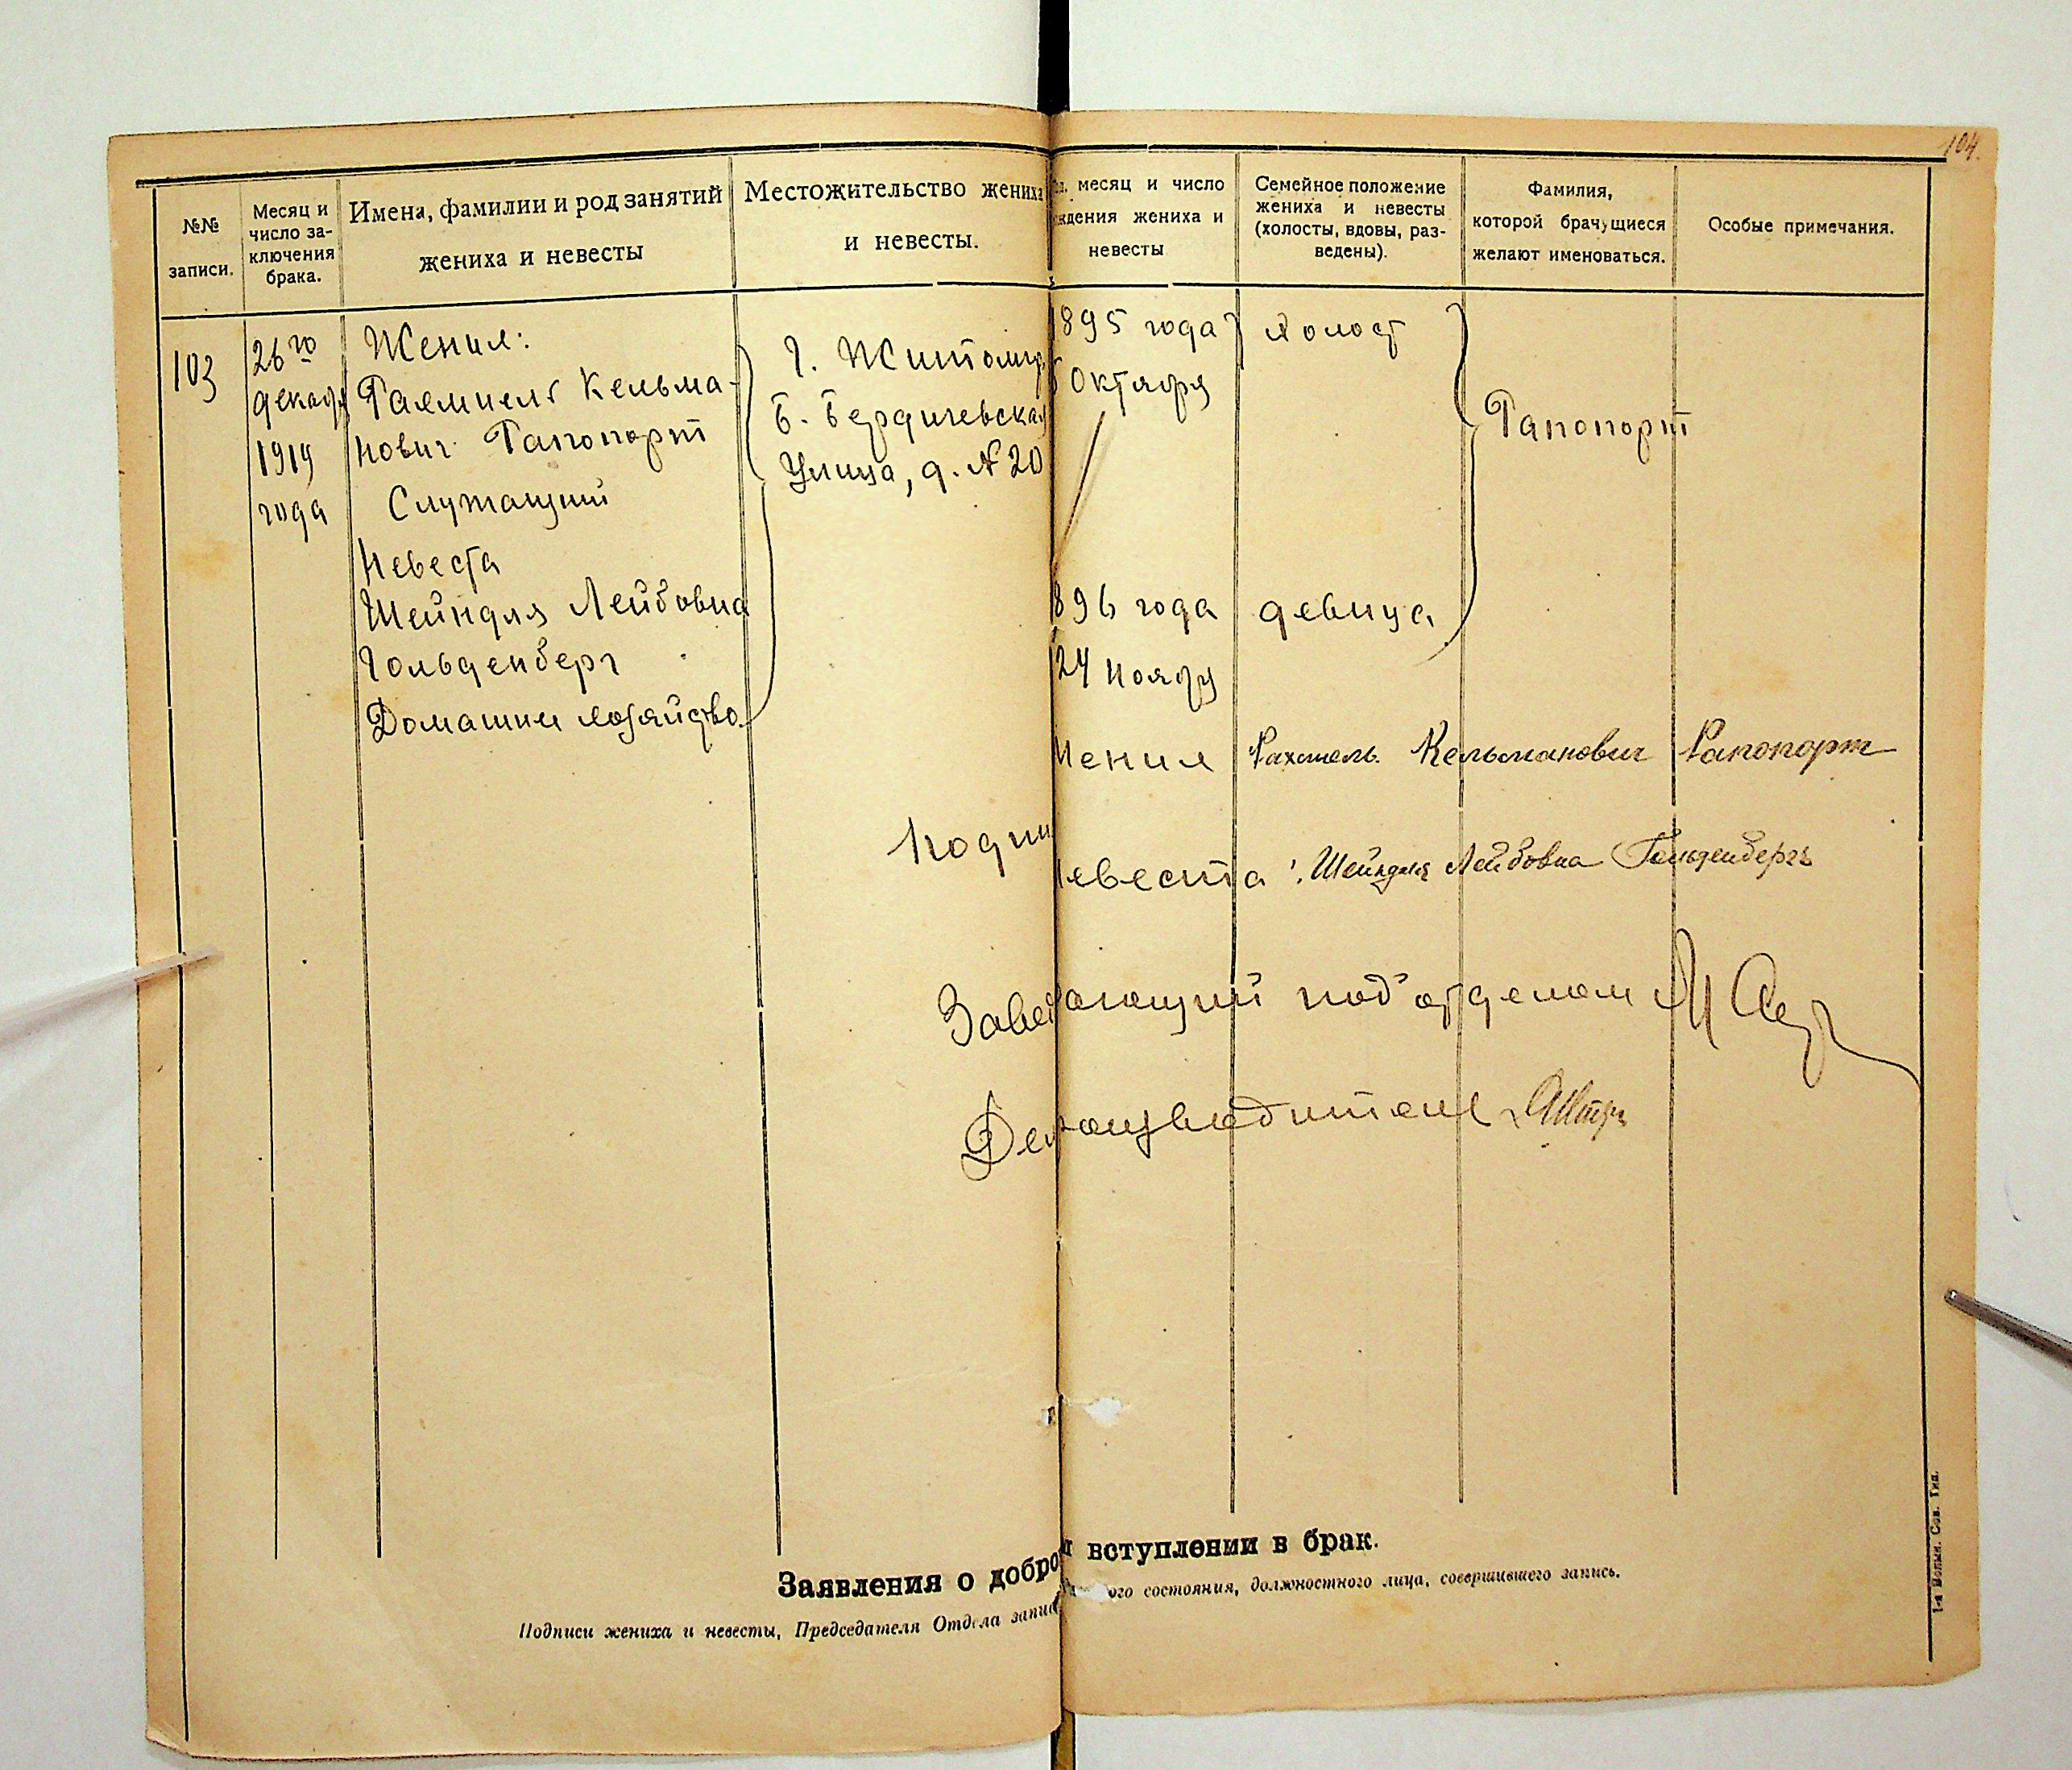 104.
№№ записи.
Месяц и число заключения брака.
Имена, фамилии и род занятий жениха и невесты
Местожительство жениха и невесты.
месяц и число
ждения жениха и
невесты
Семейное положение жениха и невесты (холосты, вдовы, разведены).
Фамилия, которой брачущиеся желают именоваться.
Особые примечания.
103
26го
декабря
1919
года
Жених:
Рахмиель Кельма-
нович Рапопорт
Служащий
Невеста
Шейндля Лейбовна
Гольденберг
Домашнее хозяйство.
г. Житомир
Б. Бердичевская
Улица, д. № 20
1895 года
Октября
холост
Рапопорт
1896 года
24 Ноября
девица
Жених Рахмель Кельманович Рапопорт
Подпи
Невеста: Шейндля Лейбовна Гольденбергъ
Заведающий подотделом
Делопроизводитель
Заявления о добро вступлении в брак.
Подписи жениха и невесты, Председателя Отдела запис ого состояния, должностного лица, совершившего запись.
1-я Волын. Сов. Тип.